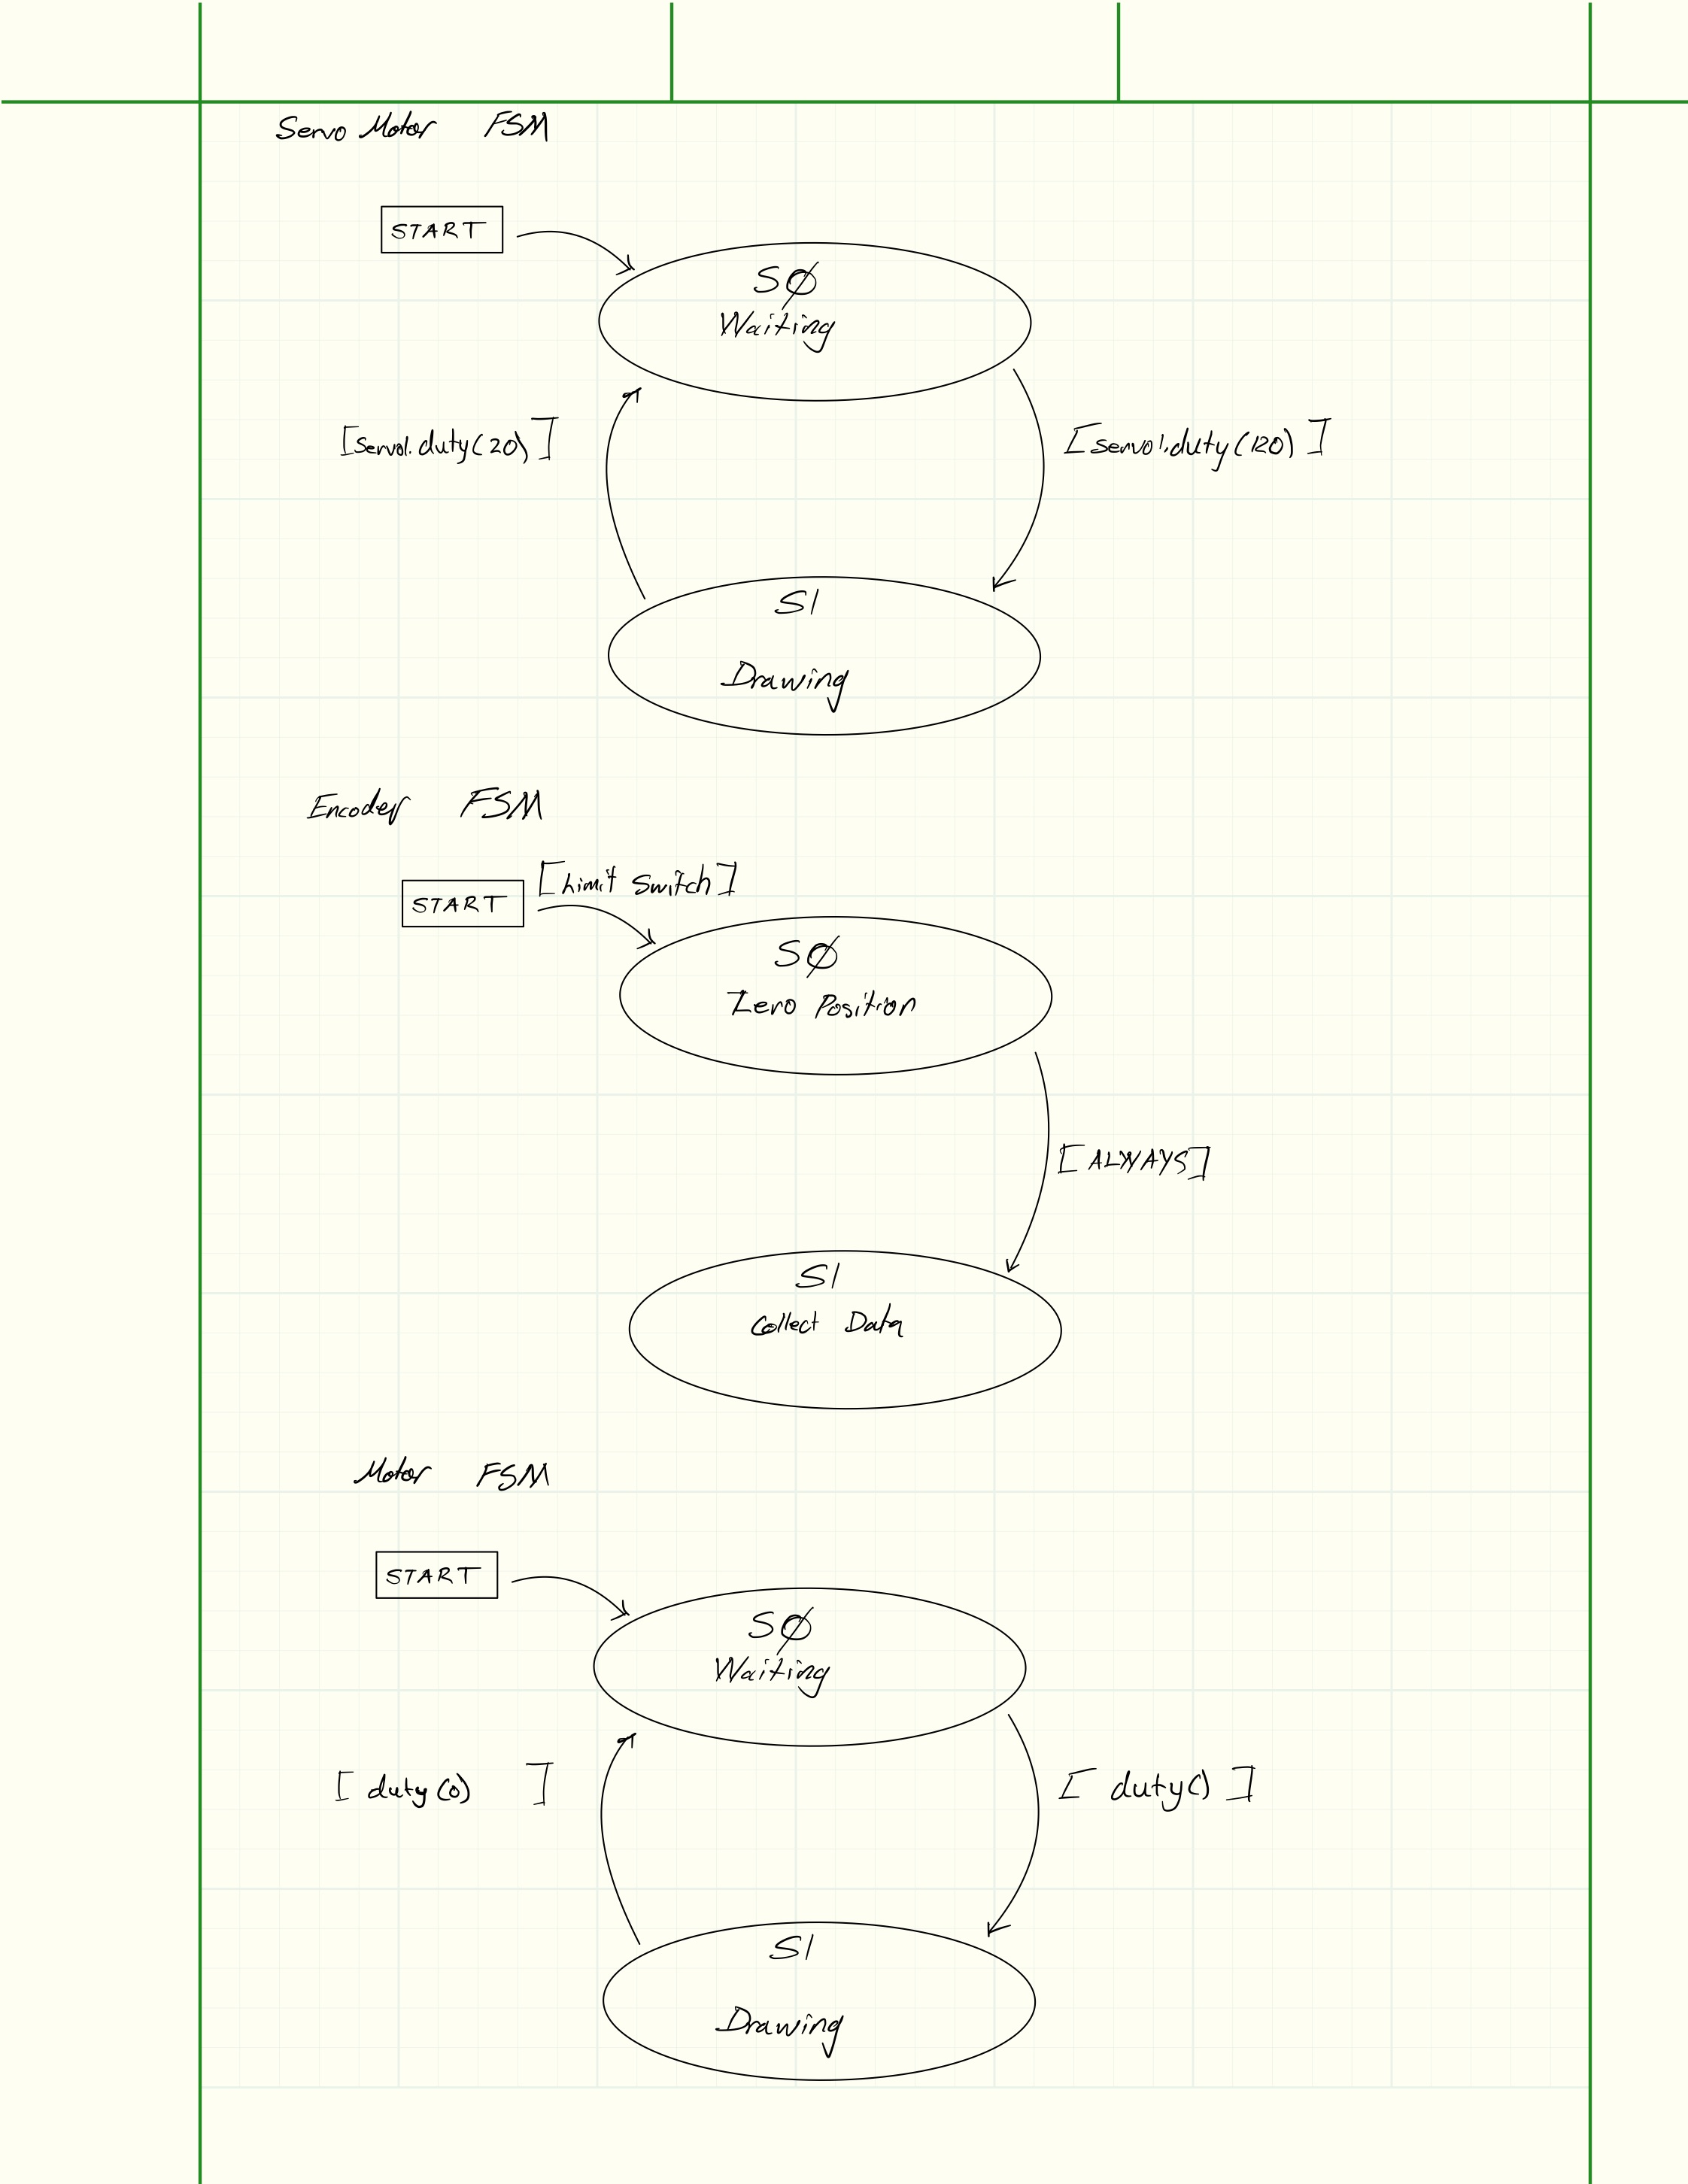 Servo Motor FSM
START
SØ
Waiting
[servo1.duty(20)]
[servo1.duty(120)]
S1
Drawing
Encoder FSM
START
[Limit Switch]
SØ
Zero Position
[ALWAYS]
S1
Collect Data
Motor FSM
START
SØ
Waiting
[duty(0) ]
[duty()]
S1
Drawing